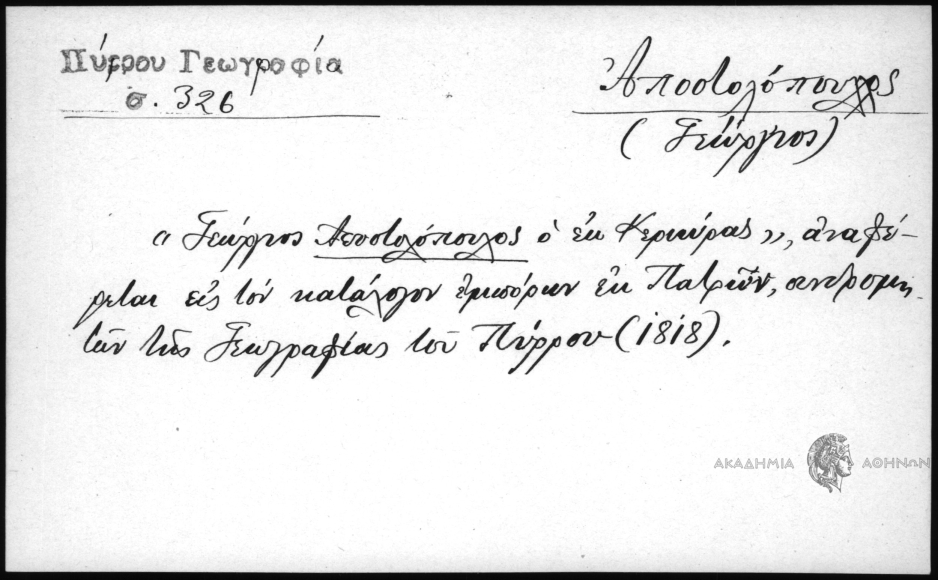 Πύρρου Γεωγραφία
σ. 326
Ἀποστολόπουλος
(Γεώργιος)
«Γεώργιος Αποστολόπουλος ὁ ἐκ Κερκύρας», ἀναφέ-
ρεται εἰς τὸν κατάλογον ἐμπόρων ἐκ Πατρῶν, συνδρομη-
τῶν τῆς Γεωγραφίας τοῦ Πύρρου (1818).
ΑΚΑΔΗΜΙΑ ΑΘΗΝΩΝ